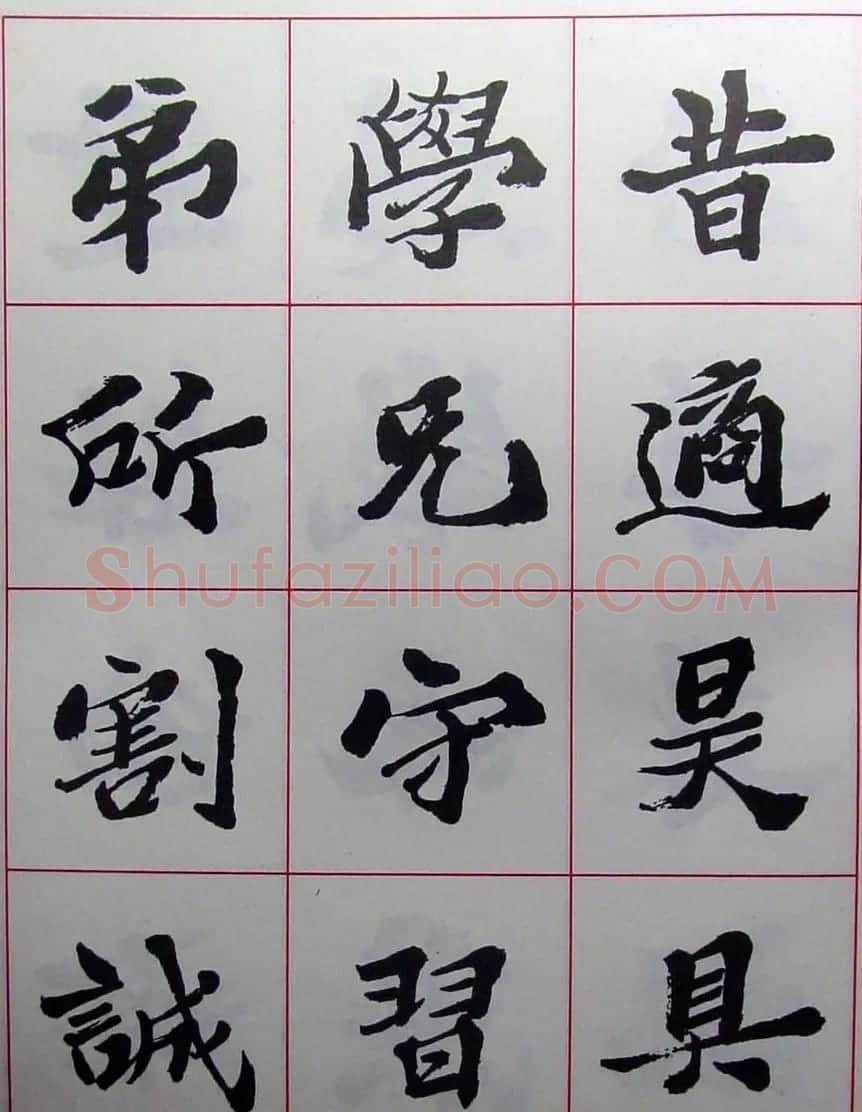 昔適昊具
學兄守習
弟所割誠
Shufaziliao.COM